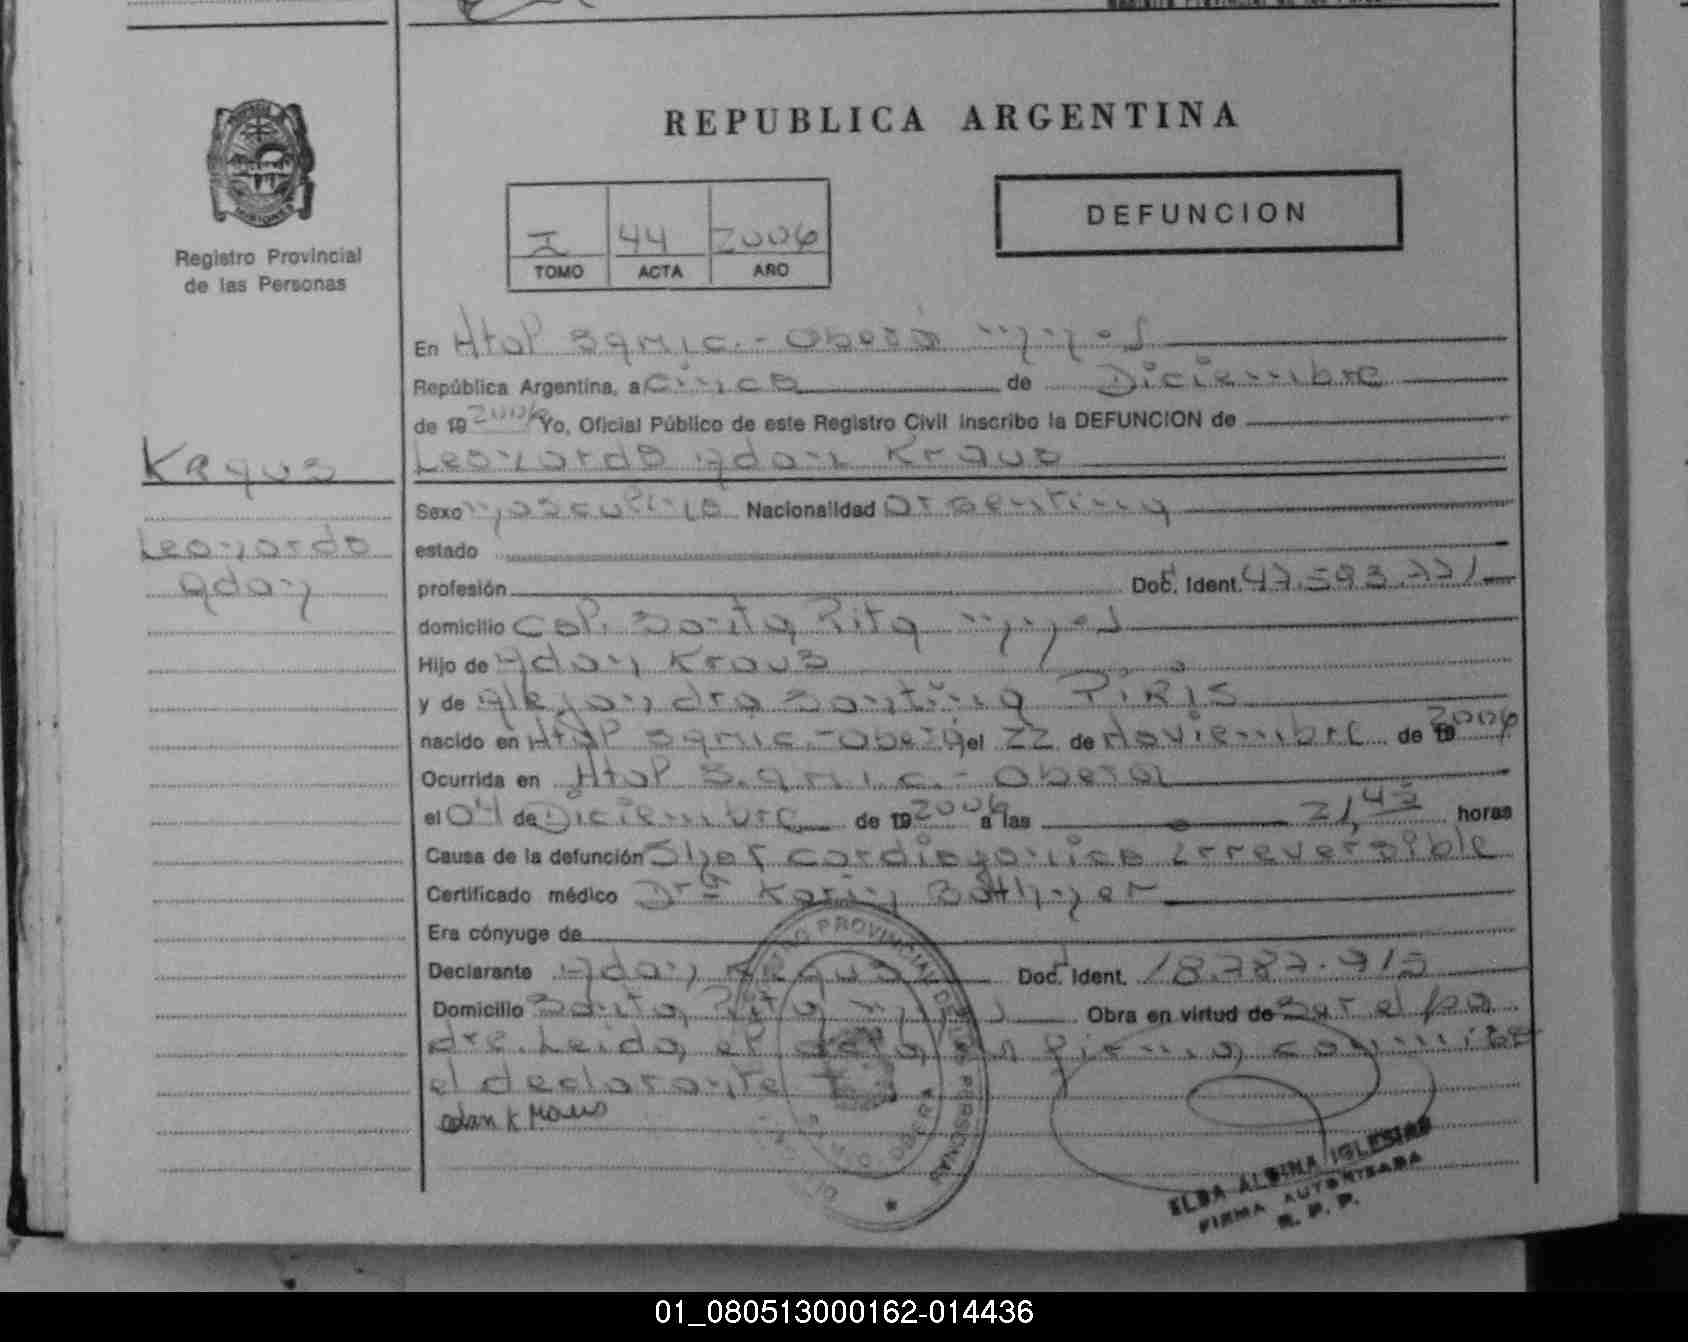 REPUBLICA ARGENTINA
DEFUNCION
I 44 2006
TOMO ACTA AÑO
MISIONES
Registro Provincial
de las Personas
En Htal Samic.- Oberá Mnes
República Argentina, a Cinco de Diciembre
de 19 2006 Yo, Oficial Público de este Registro Civil inscribo la DEFUNCION de
Kraus
Leonardo Adan Kraus
Sexo Masculino Nacionalidad Argentina
Leonardo
estado
Adan
profesión Doc. Ident. 47.593.771
domicilio Col. Santa Rita Mnes
Hijo de Adan Kraus
y de Alejandra Santina PIRIS
nacido en Htal Samic.- Oberá el 22 de Noviembre de 19 2006
Ocurrida en Htal S.a.m.i.c.- Oberá
el 04 de Diciembre de 19 2006 a las 21,45 horas
Causa de la defunción Shok cardiogenico irreversible
Certificado médico Drª Karin
Era cónyuge de
Declarante Adan Kraus Doc. Ident. 18.787.915
Domicilio Santa Rita Mnes Obra en virtud de Ser el pa
dre. Leida el acta, la firma conmigo
el declarante
adan Kraus
REGISTRO PROVINCIAL DE LAS PERSONAS
ELBA ALBINA IGLESIAS
FIRMA AUTORIZADA
R. P. P.
01_080513000162-014436